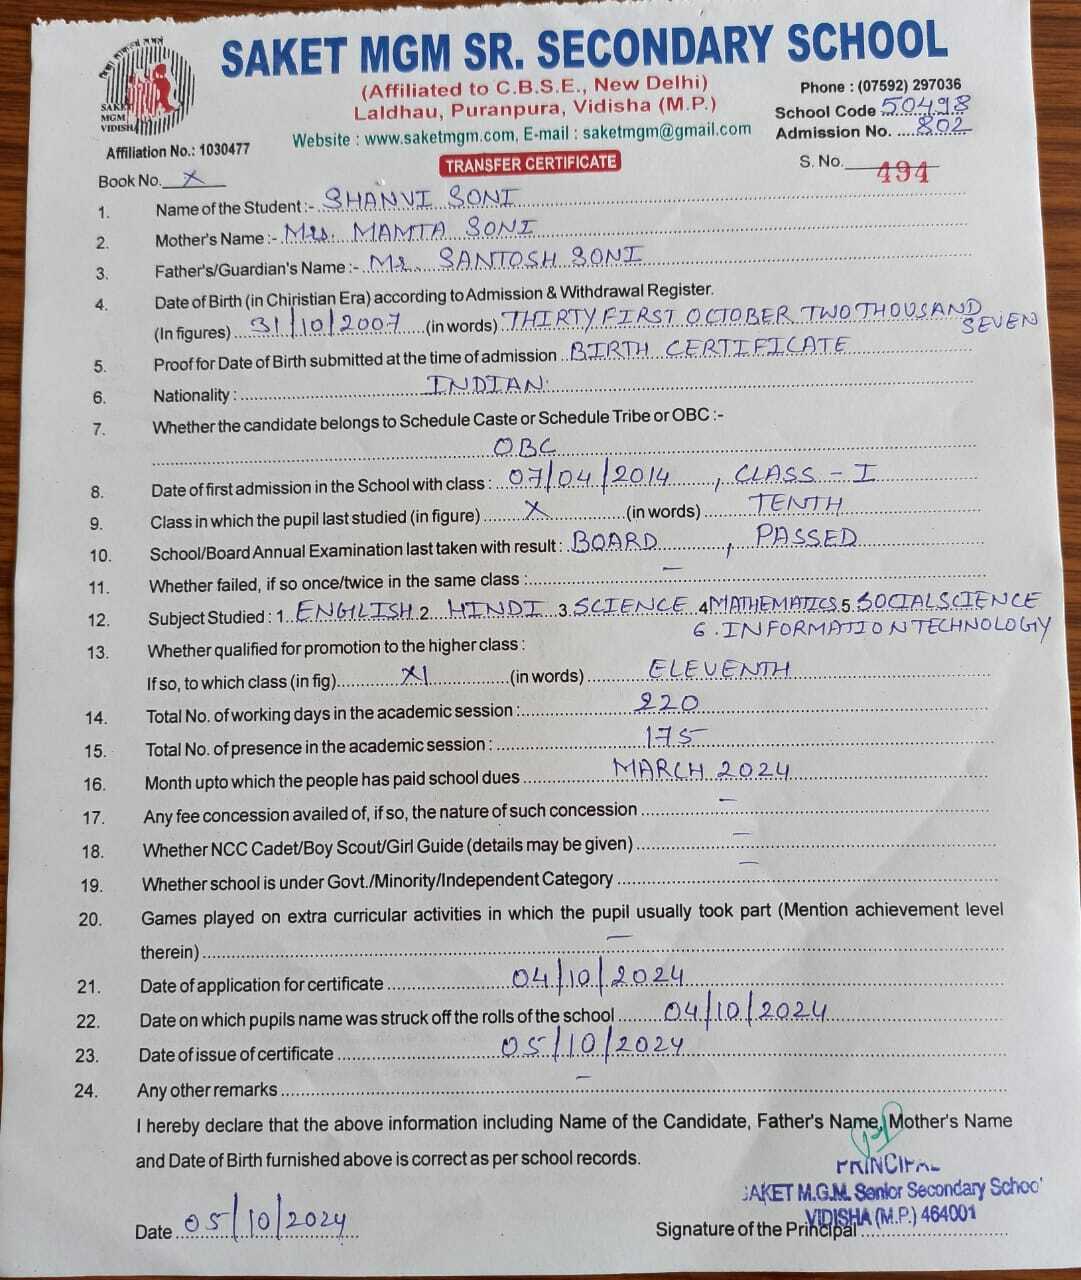 SAKET MGM SR. SECONDARY SCHOOL
(Affiliated to C.B.S.E., New Delhi)
Laldhau, Puranpura, Vidisha (M.P.)
Website : www.saketmgm.com, E-mail : saketmgm@gmail.com
Phone : (07592) 297036
School Code 50498
Admission No. ....802
SAKET
MGM
VIDISHA
Affiliation No.: 1030477
TRANSFER CERTIFICATE
Book No. X
S. No. 494
1. Name of the Student :- SHANVI SONI
2. Mother's Name :- Mrs. MAMTA SONI
3. Father's/Guardian's Name :- Mr. SANTOSH SONI
4. Date of Birth (in Chiristian Era) according to Admission & Withdrawal Register.
(In figures) 31/10/2007 (in words) THIRTY FIRST OCTOBER TWO THOUSAND
SEVEN
5. Proof for Date of Birth submitted at the time of admission BIRTH CERTIFICATE
6. Nationality : INDIAN
7. Whether the candidate belongs to Schedule Caste or Schedule Tribe or OBC :-
OBC
8. Date of first admission in the School with class : 07/04/2014, CLASS - I
9. Class in which the pupil last studied (in figure) X (in words) TENTH
10. School/Board Annual Examination last taken with result : BOARD, PASSED
11. Whether failed, if so once/twice in the same class : —
12. Subject Studied : 1. ENGILISH 2. HINDI 3. SCIENCE 4 MATHEMATICS 5. SOCIAL SCIENCE
6. INFORMATION TECHNOLOGY
13. Whether qualified for promotion to the higher class :
If so, to which class (in fig) XI (in words) ELEVENTH
14. Total No. of working days in the academic session : 220
15. Total No. of presence in the academic session : 175
16. Month upto which the people has paid school dues MARCH 2024
17. Any fee concession availed of, if so, the nature of such concession —
18. Whether NCC Cadet/Boy Scout/Girl Guide (details may be given) —
19. Whether school is under Govt./Minority/Independent Category —
20. Games played on extra curricular activities in which the pupil usually took part (Mention achievement level
therein) —
21. Date of application for certificate 04/10/2024
22. Date on which pupils name was struck off the rolls of the school 04/10/2024
23. Date of issue of certificate 05/10/2024
24. Any other remarks —
I hereby declare that the above information including Name of the Candidate, Father's Name, Mother's Name
and Date of Birth furnished above is correct as per school records.
PRINCIPAL
SAKET M.G.M. Senior Secondary School
VIDISHA (M.P.) 464001
Date 05/10/2024
Signature of the Principal